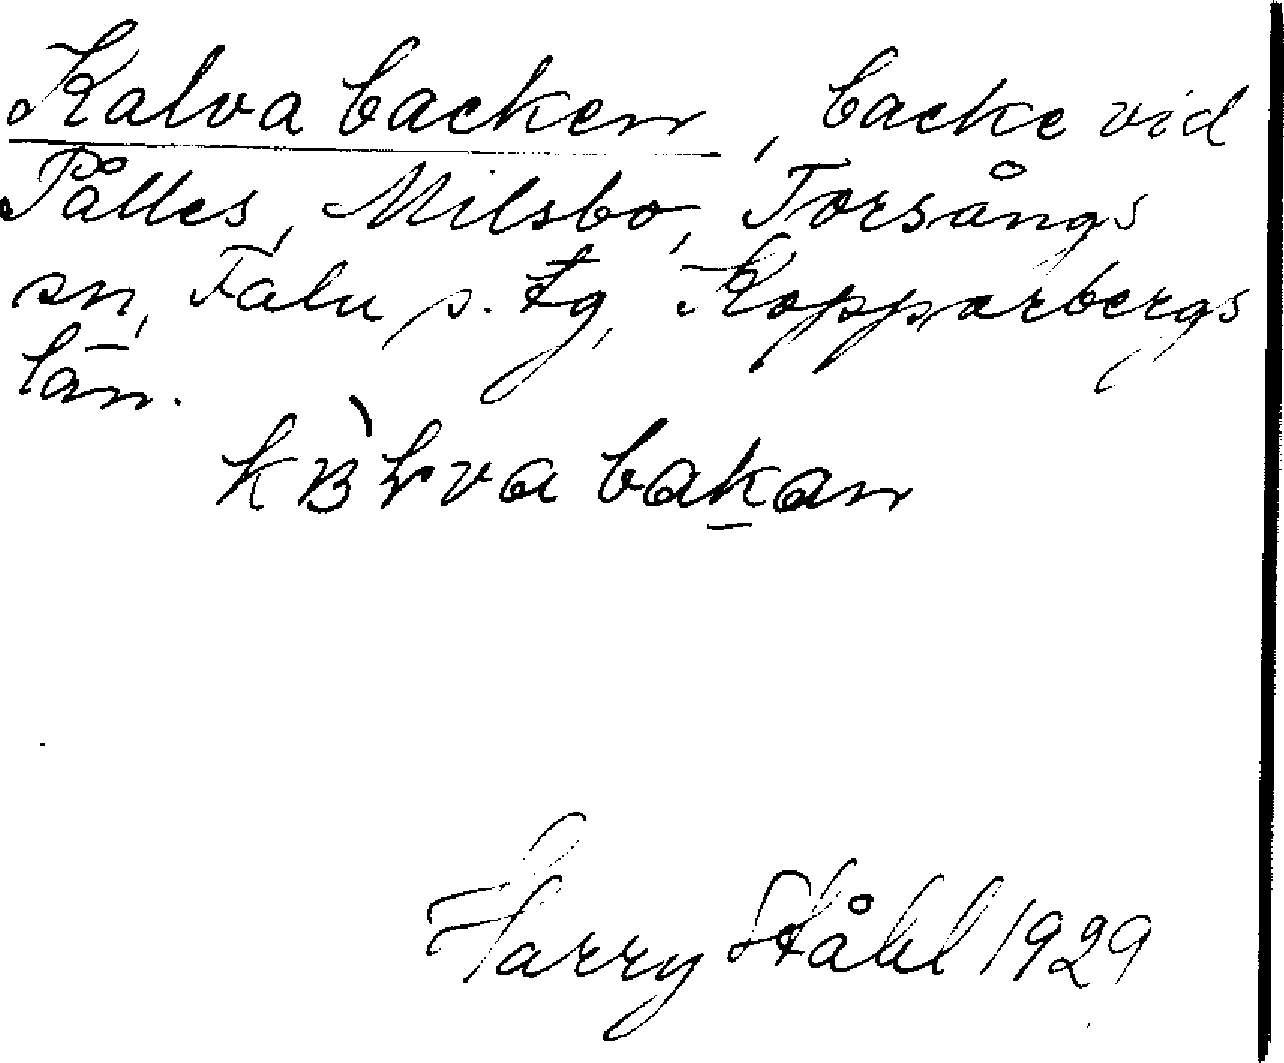 Kalvabacken, backe vid
Pålles, Milsbo, Torsångs
sn, Falu s. tg, Kopparbergs
län.
Harry Ståhl 1929